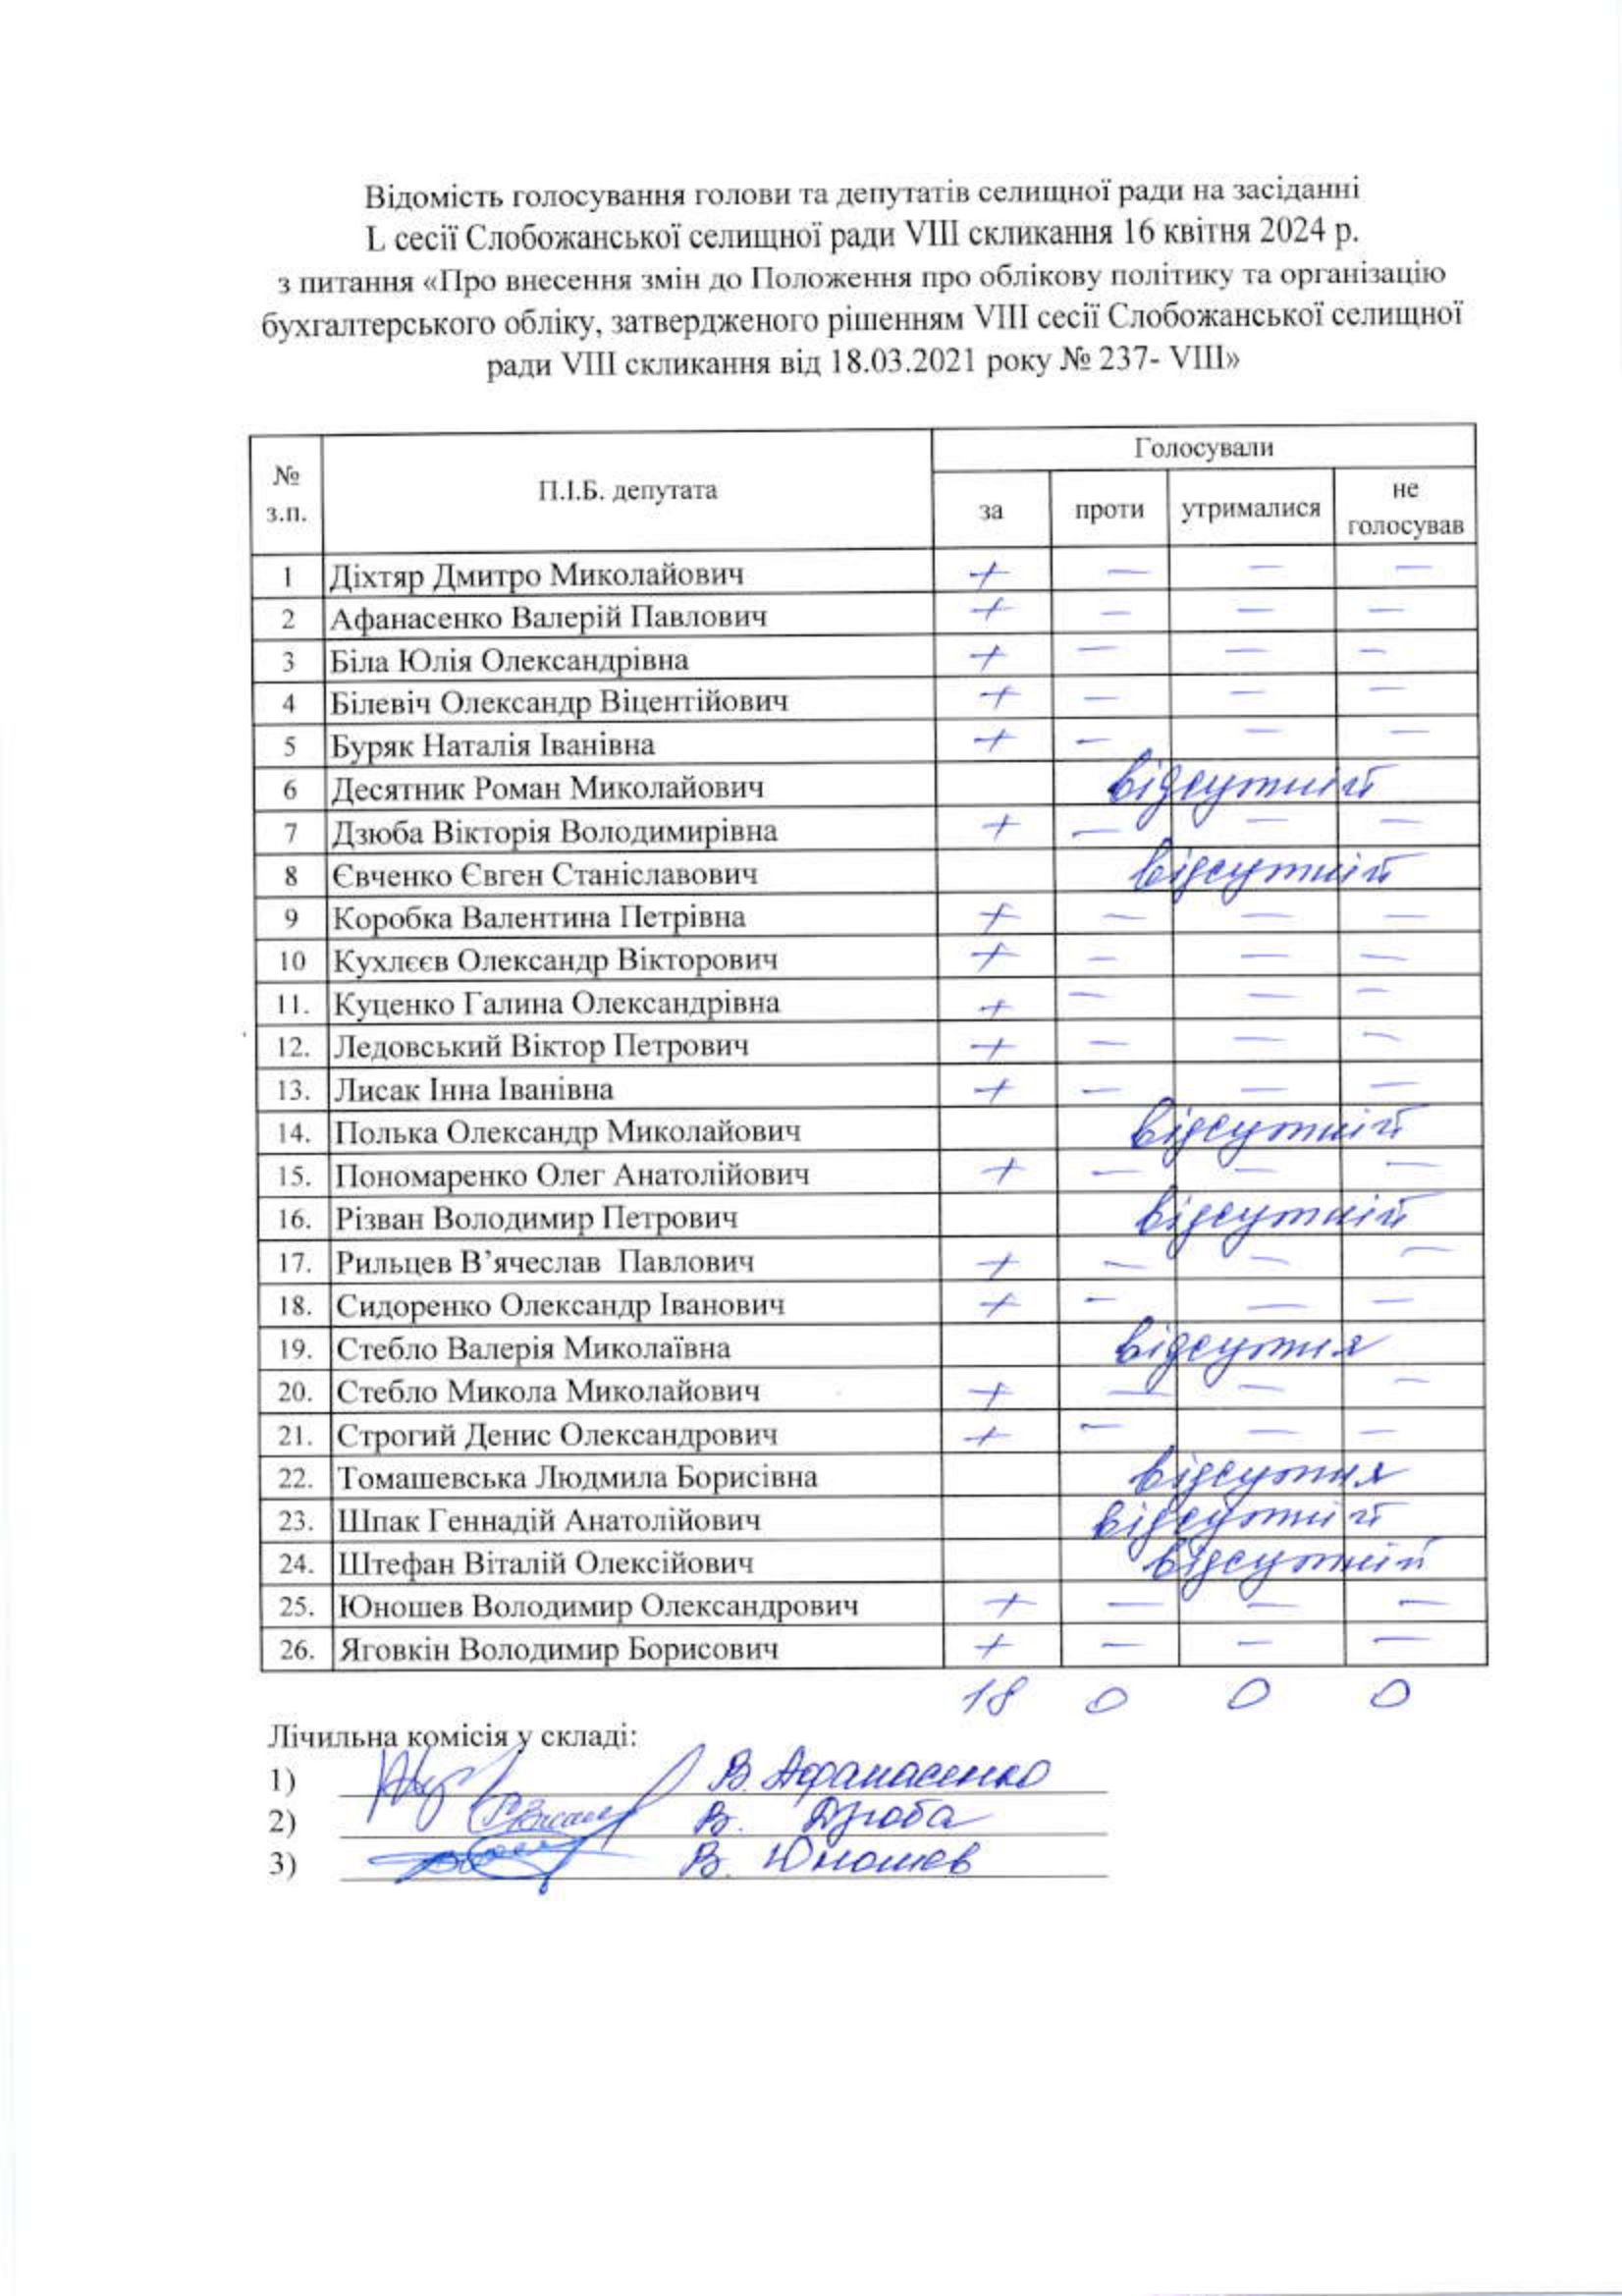 Відомість голосування голови та депутатів селищної ради на засіданні
L сесії Слобожанської селищної ради VIII скликання 16 квітня 2024 р.
з питання «Про внесення змін до Положення про облікову політику та організацію
бухгалтерського обліку, затвердженого рішенням VIII сесії Слобожанської селищної
ради VIII скликання від 18.03.2021 року № 237- VIII»
№ з.п. П.І.Б. депутата Голосували
за проти утрималися не голосував
1 Діхтяр Дмитро Миколайович + — — —
2 Афанасенко Валерій Павлович + — — —
3 Біла Юлія Олександрівна + — — —
4 Білевіч Олександр Віцентійович + — — —
5 Буряк Наталія Іванівна + — — —
6 Десятник Роман Миколайович відсутній
7 Дзюба Вікторія Володимирівна + — — —
8 Євченко Євген Станіславович відсутній
9 Коробка Валентина Петрівна + — — —
10 Кухлєєв Олександр Вікторович + — — —
11. Куценко Галина Олександрівна + — — —
12. Ледовський Віктор Петрович + — — —
13. Лисак Інна Іванівна + — — —
14. Полька Олександр Миколайович відсутній
15. Пономаренко Олег Анатолійович + — — —
16. Різван Володимир Петрович відсутній
17. Рильцев В’ячеслав Павлович + — — —
18. Сидоренко Олександр Іванович + — — —
19. Стебло Валерія Миколаївна відсутня
20. Стебло Микола Миколайович + — — —
21. Строгий Денис Олександрович + — — —
22. Томашевська Людмила Борисівна відсутня
23. Шпак Геннадій Анатолійович відсутній
24. Штефан Віталій Олексійович відсутній
25. Юношев Володимир Олександрович + — — —
26. Яговкін Володимир Борисович + — — —
18 0 0 0
Лічильна комісія у складі:
1) В. Афанасенко
2) В. Дзюба
3) В. Юношев